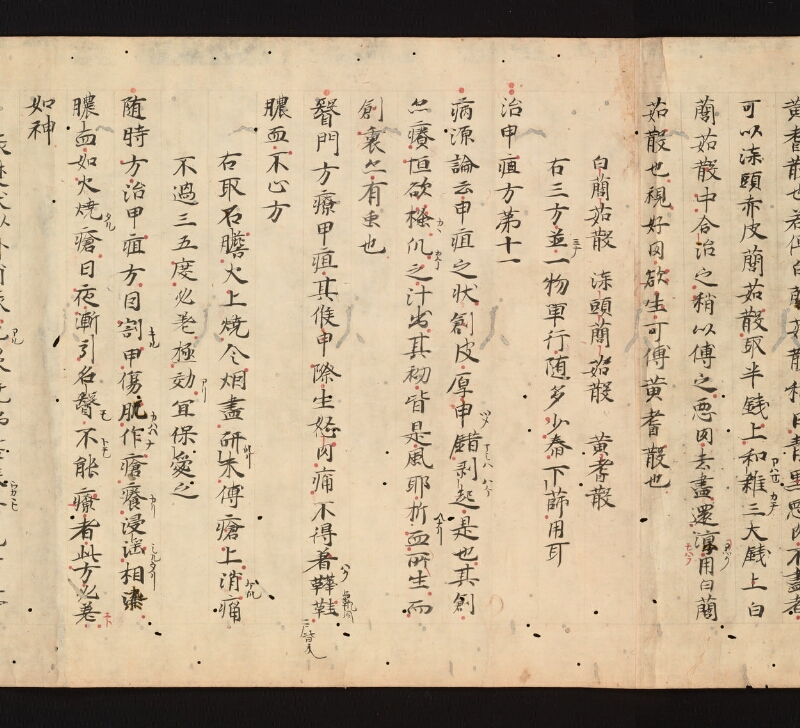 可以漆頭赤皮蕳茹散取半錢上和雜三大錢上白
蕳茹散中合治之稍以傅之惡肉去盡還淳用白蕳
茹散也視好肉欲生可傅黃耆散也
白蕳茹散 漆頭蕳茹散 黃耆散
右三方並一物單行随多少舂下篩用耳
治甲疽方第十一
病源論云甲疽之状創皮厚甲錯剥起是也其創
亦癢恒欲搔爪之汁出其初皆是風耶折血所生而
創裏亦有虫也
醫門方療甲疽其候甲際生怒肉痛不得着鞾鞋
膿血不心方
右取石膽火上燒令烟盡研末傅瘡上消痛
不過三五度必老極効冝保愛之
随時方治甲疽方目割甲傷肌作瘡癢浸滛相染
膿血如火燒瘡日夜漸引名醫不能療者此方必老
如神